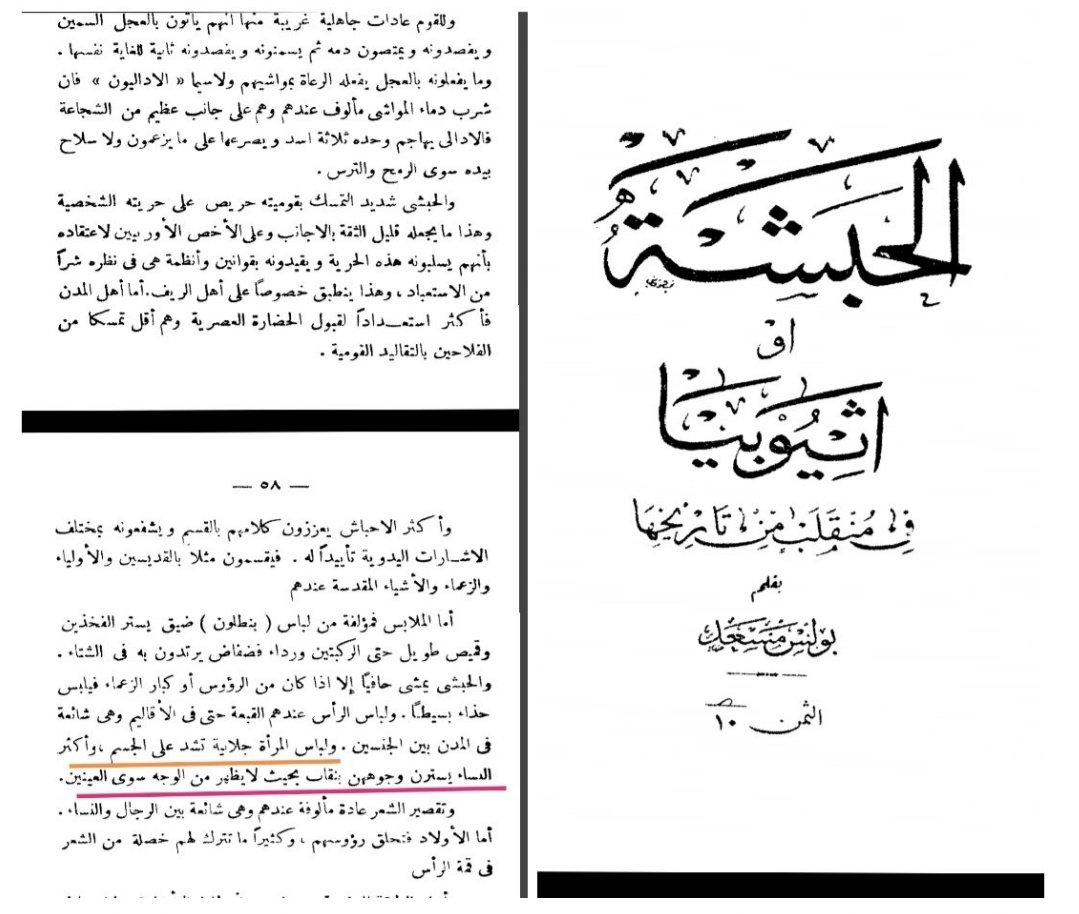 وللقوم عادات جاهلية غريبة منها انهم يأتون بالعجل السمين
ويفصدونه ويمتصون دمه ثم يسمنونه ويفصدونه ثانية للغاية نفسها .
وما يفعلونه بالعجل يفعله الرعاة بمواشيهم ولاسيما « الاداليون » فان
شرب دماء المواشى مألوف عندهم وهم على جانب عظيم من الشجاعة
فالادالى يهاجم وحده ثلاثة اسد ويصرعها على ما يزعمون ولا سلاح
بيده سوى الرمح والترس .
والحبشى شديد التمسك بقوميته حريص على حريته الشخصية
وهذا ما يجعله قليل الثقة بالاجانب وعلى الأخص الأوربيين لاعتقاده
بأنهم يسلبونه هذه الحرية ويقيدونه بقوانين وأنظمة هى فى نظره شراً
من الاستعباد ، وهذا ينطبق خصوصاً على أهل الريف. أما أهل المدن
فأكثر استعـــداداً لقبول الحضارة العصرية وهم أقل تمسكا من
الفلاحين بالتقاليد القومية .
— ٥٨ —
وأكثر الاحباش يعززون كلامهم بالقسم ويشفعونه بمختلف
الاشــارات اليدوية تأييداً له . فيقسمون مثلا بالقديسين والأولياء
والزعماء والأشياء المقدسة عندهم
أما الملابس فمؤلفة من لباس ( بنطلون ) ضيق يستر الفخذين
وقميص طويل حتى الركبتين ورداء فضفاض يرتدون به فى الشتاء .
والحبشى يمشى حافياً إلا اذا كان من الرؤوس أو كبار الزعماء فيلبس
حذاء بسيطاً . ولباس الرأس عندهم القبعة حتى فى الأقاليم وهى شائعة
فى المدن بين الجنسين . ولباس المرأة جلابية تشد على الجسم ، وأكثر
النساء يسترن وجوههن بنقاب بحيث لايظهر من الوجه سوى العينين.
وتقصير الشعر عادة مألوفة عندهم وهى شائعة بين الرجال والنساء .
أما الأولاد فتحلق رؤوسهم ، وكثيراً ما تترك لهم خصلة من الشعر
فى قمة الرأس
الحبشة
او
اثيوبيا
في منقلب من تاريخها
بقلم
بولس مسعد
الثمن ١٠